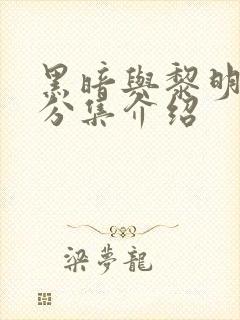 黑暗與黎明
分集介紹
梁夢龍